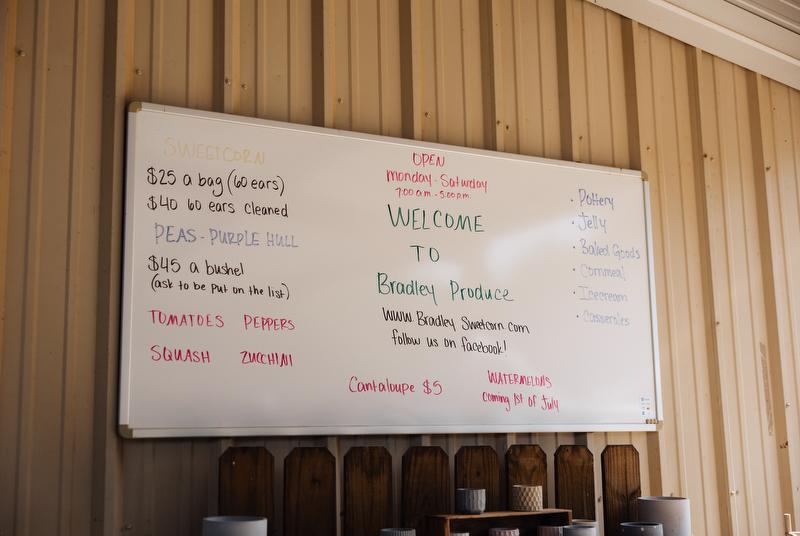 SWEETCORN
$25 a bag (60 ears)
$40 60 ears cleaned
PEAS - PURPLE HULL
$45 a bushel
(ask to be put on the list)
TOMATOES PEPPERS
SQUASH ZUCCHINI
OPEN
Monday - Saturday
7:00 a.m. - 5:00 p.m.
WELCOME
TO
Bradley Produce
www.Bradley Sweetcorn.com
follow us on facebook!
Cantaloupe $5
WATERMELONS
coming 1st of July
• Pottery
• Jelly
• Baked Goods
• Cornmeal
• Icecream
• Casseroles